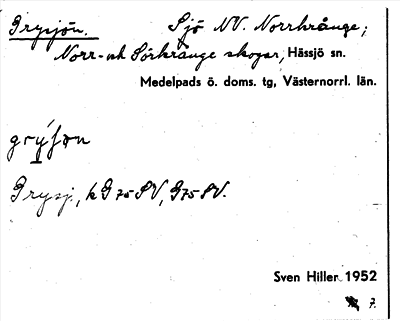 Grysjön. Sjö NV. Norrkrånge;
Norr- och Sörkrånge skogar, Hässjö sn.
Medelpads ö. doms. tg, Västernorrl. län.
grýʃøn
Grysj., k G 75 SV, G75 SV.
Sven Hiller 1952
7.